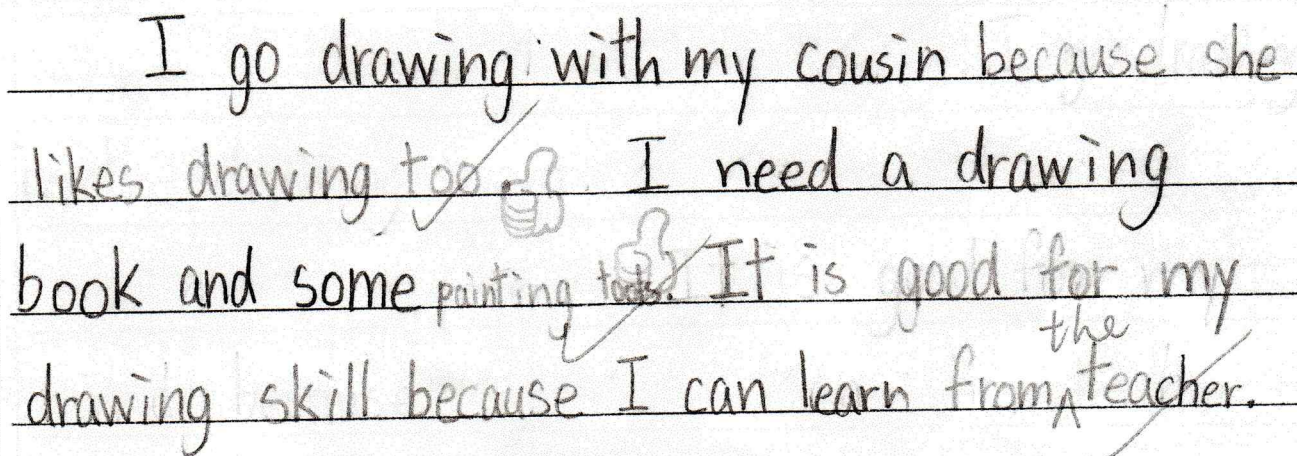 I go drawing with my cousin because she
likes drawing too. I need a drawing
book and some painting tools. It is good for my
the
drawing skill because I can learn from ^ teacher.